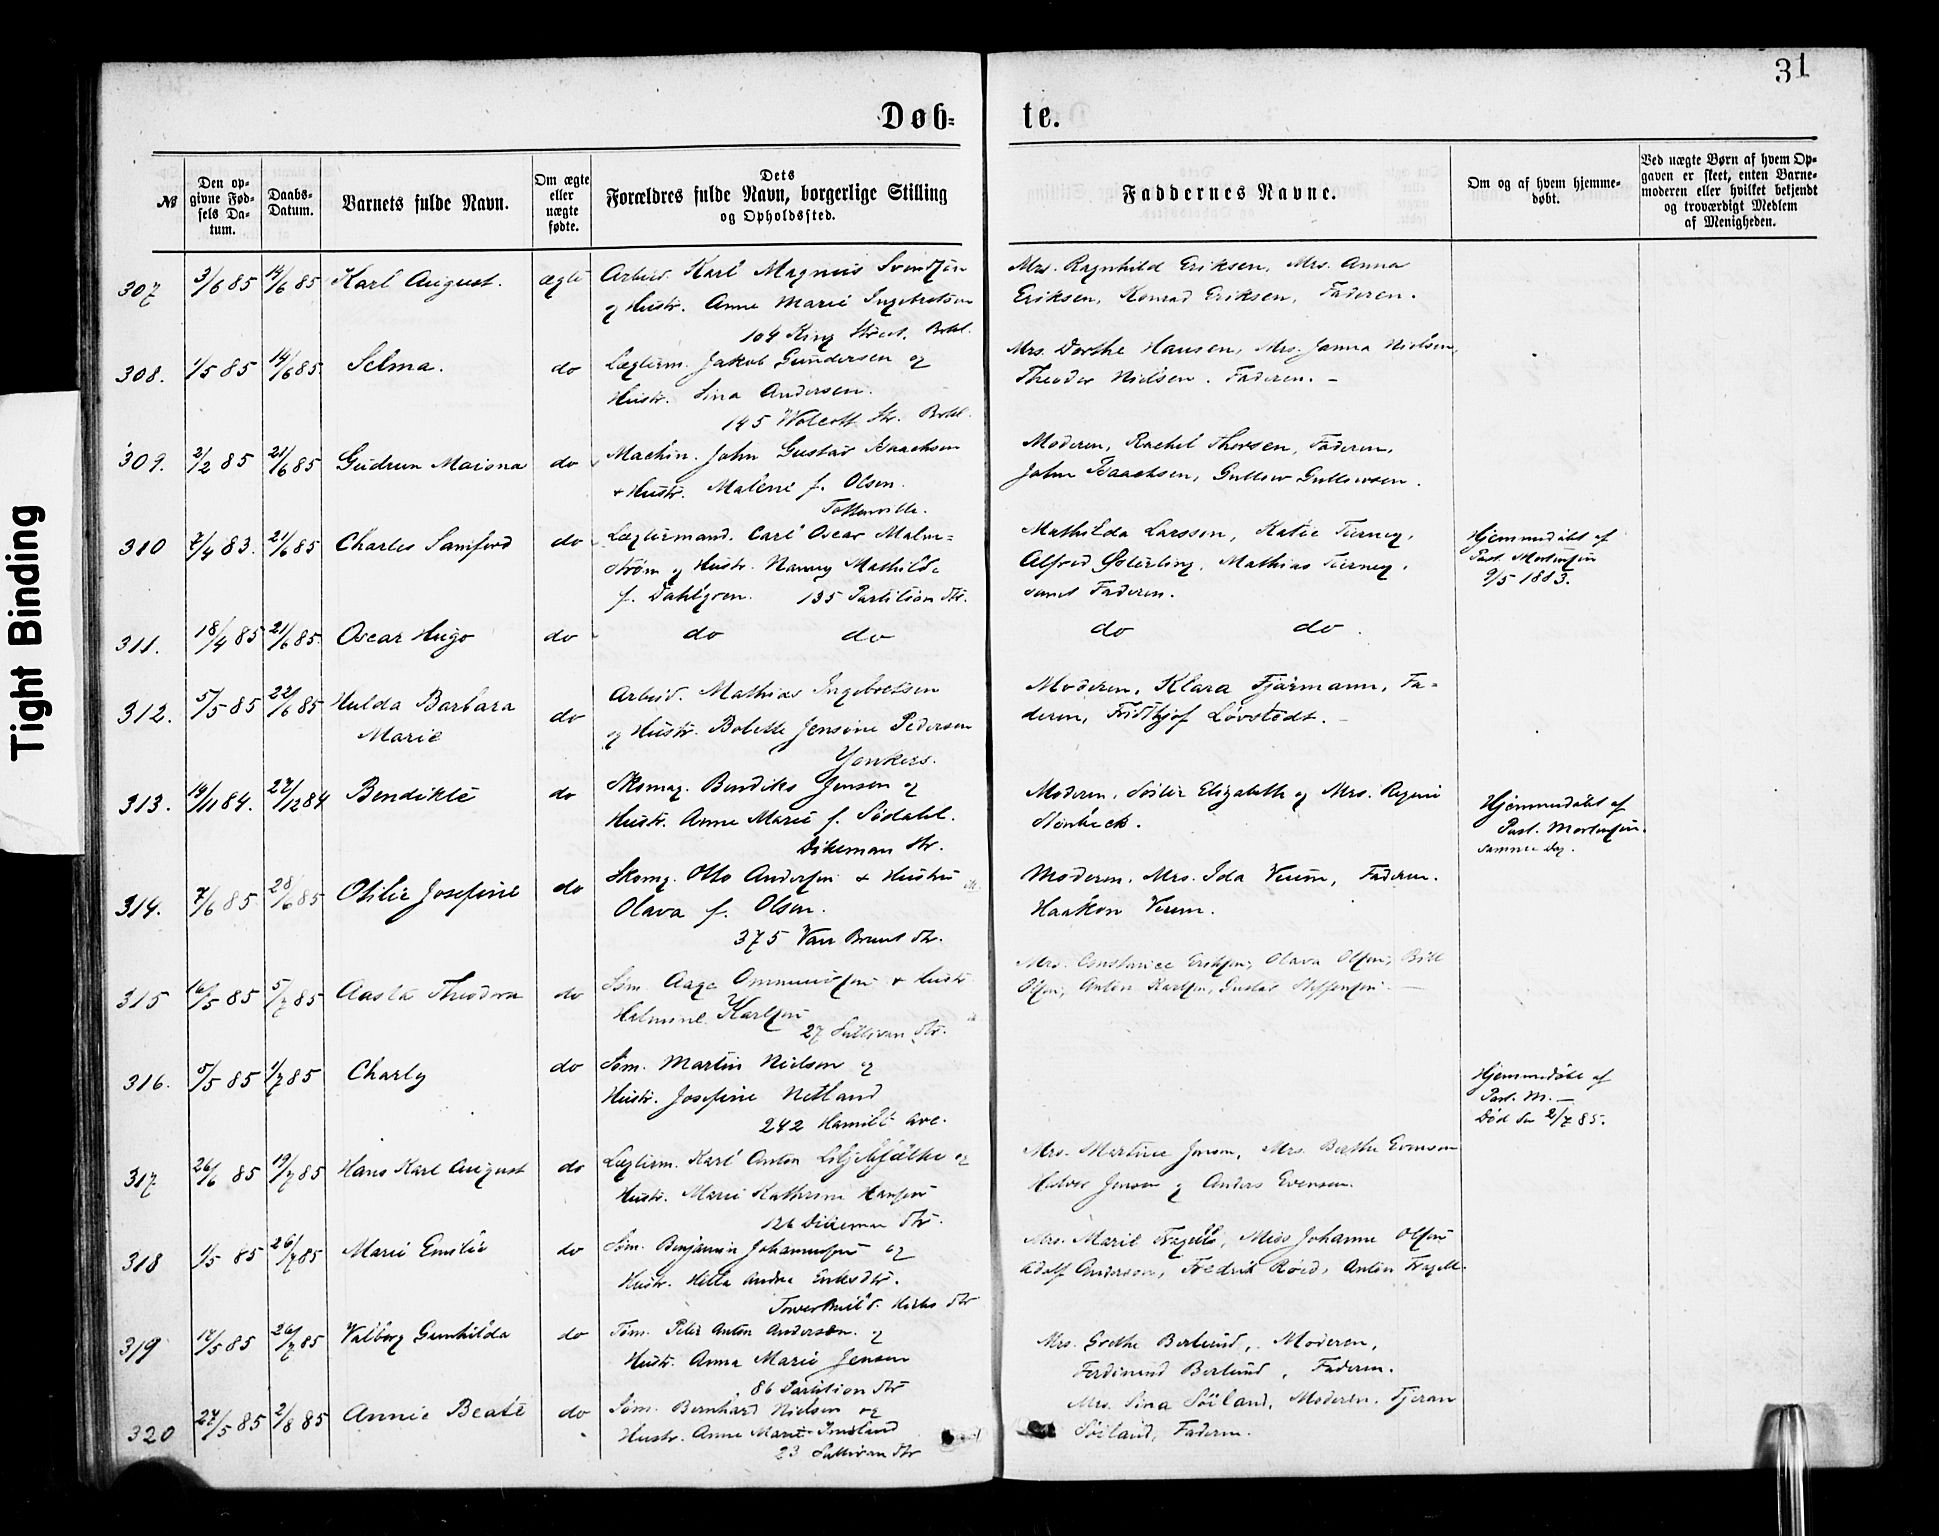 31
Døb=
te.
Tight Binding
№
Den op=
givne Fød=
sels Da=
tum.
Daabs=
Datum.
Barnets fulde Navn.
Om ægte
eller
uægte
fødte.
Dets
Forældres fulde Navn, borgerlige Stilling
og Opholdssted.
Faddernes Navne.
Om og af hvem hjemme=
døbt.
Ved uægte Børn af hvem Op=
gaven er skeet, enten Barne=
moderen eller hvilket bekjendt
og troværdigt Medlem
af Menigheden.
307 3/6 85 14/6 85 Karl August. ægte Arbeid. Karl Magnus
og Hustr. Anne Marie Ingebretsen
104 King Street. Bokl.
Mrs. Ragnhild Eriksen, Mrs. Anna
Eriksen, Konrad Eriksen, Faderen.
308. 1/5 85 14/6 85 Selma. do Lægterm. Jakob Gundersen og
Hustr. Sina Andersen.
145 Wolcott Str. Bokl.
Mrs. Dorthe Hansen, Mrs. Janna Nielsen,
Theodor Nielsen. Faderen. –
309. 2/2 85 21/6 85 Gudrun Maisna do Machin. John Gustav Isaachsen
+ Hustr. Malene f. Olsen.
Tottenville.
Moderen, Rachel Thorsen, Faderen,
John Isaachsen, Gullow Gullowsen.
310 7/4 83. 21/6 85 Charles Samford do Lægtermand. Carl Oscar Malm=
strøm og Hustr. Nanny Mathilde
f. Dahlgren. 135 Partition Str.
Mathilda Larsson, Katie Tierney,
Alfred Østerling, Mathias Tierney,
samt Faderen.
Hjemmedøbt af
Past. Mortensen
9/5 1883.
311. 18/4 85 21/6 85. Oscar Hugo do do do
do do.
312. 5/5 85 22/6 85 Hulda Barbara
Marie
do Arbeid. Mathias Ingebretsen
og Hustr. Bolette Jensine Pedersen
Yonkers.
Moderen, Klara Fjærmann, Fa=
deren, Fridthjof Løvstedt. –
313. 14/11 84. 27/12 84 Bendikte do Skomag. Bendiks Jensen og
Hustr. Anne Marie f. Södahl.
Dikeman Str.
Moderen, Søster Elizabeth og Mrs. Regine
Stenbeck.
Hjemmedøbt af
Past. Mortensen.
samme Dag.
314. 7/6 85 28/6 85 Otilie Josefine do Skomg. Otto Andersen + Hustru
Olava f. Olsen.
375 Van Brunt Str.
Moderen, Mrs. Ida Verum, Faderen.
Haakon Verum.
315 16/5 85 5/7 85 Aasta Theodora do Søm. Aage + Hustr.
Helmine Karlsen
27 Sullivan Str.
Mrs. Constance Eriksen, Olava Olsen,
Olsen, Anton Karlsen, Gustav Steffensen. —
316. 5/5 85 1/7 85 Charly do Søm. Martin Nielsen og
Hustr. Josefine Netland
242 Hamilt ave.
Hjemmedøbt af
Past. M. —
Død den 2/7 85.
317 26/6 85 19/7 85 Hans Karl August do Lægterm. Karl Anton og
Hustr. Marie Kathrine Hansen
126 Dikeman Str.
Mrs. Martine Jensen, Mrs. Berthe Evensen
Halvor Jensen og Anders Evensen.
318 1/5 85 26/7 85 Marie Emilie do Søm. Benjamin Johannesen og
Hustr. Hilla Andrea
Tower Build. Hicks Str
Mrs. Marie Fragell, Miss Johanne Olsen
Adolf Anderson, Fredrik Röed, Anton Fragell.
319 17/5 85 26/7 85 Valborg Gunhilda do Tøm. Peter Anton Andersen. og
Hustr. Anna Marie Jensen
86 Partition Str
Mrs. Grethe Berlund, Moderen,
Ferdinand Berlund, Faderen.
320 27/5 85 2/8 85 Annie Beate do Søm. Bernhard Nielsen og
Hustr. Anne Marie
23 Sullivan Str
Mrs. Sina Söiland, Moderen. Tjeran
Söiland, Faderen.